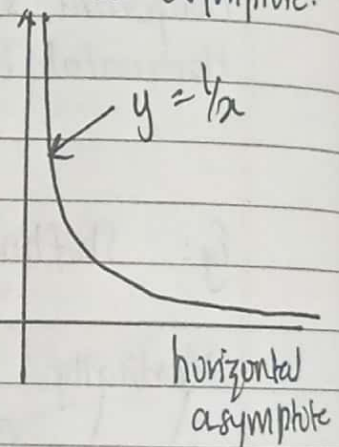 y = 1/x
horizontal
asymptote